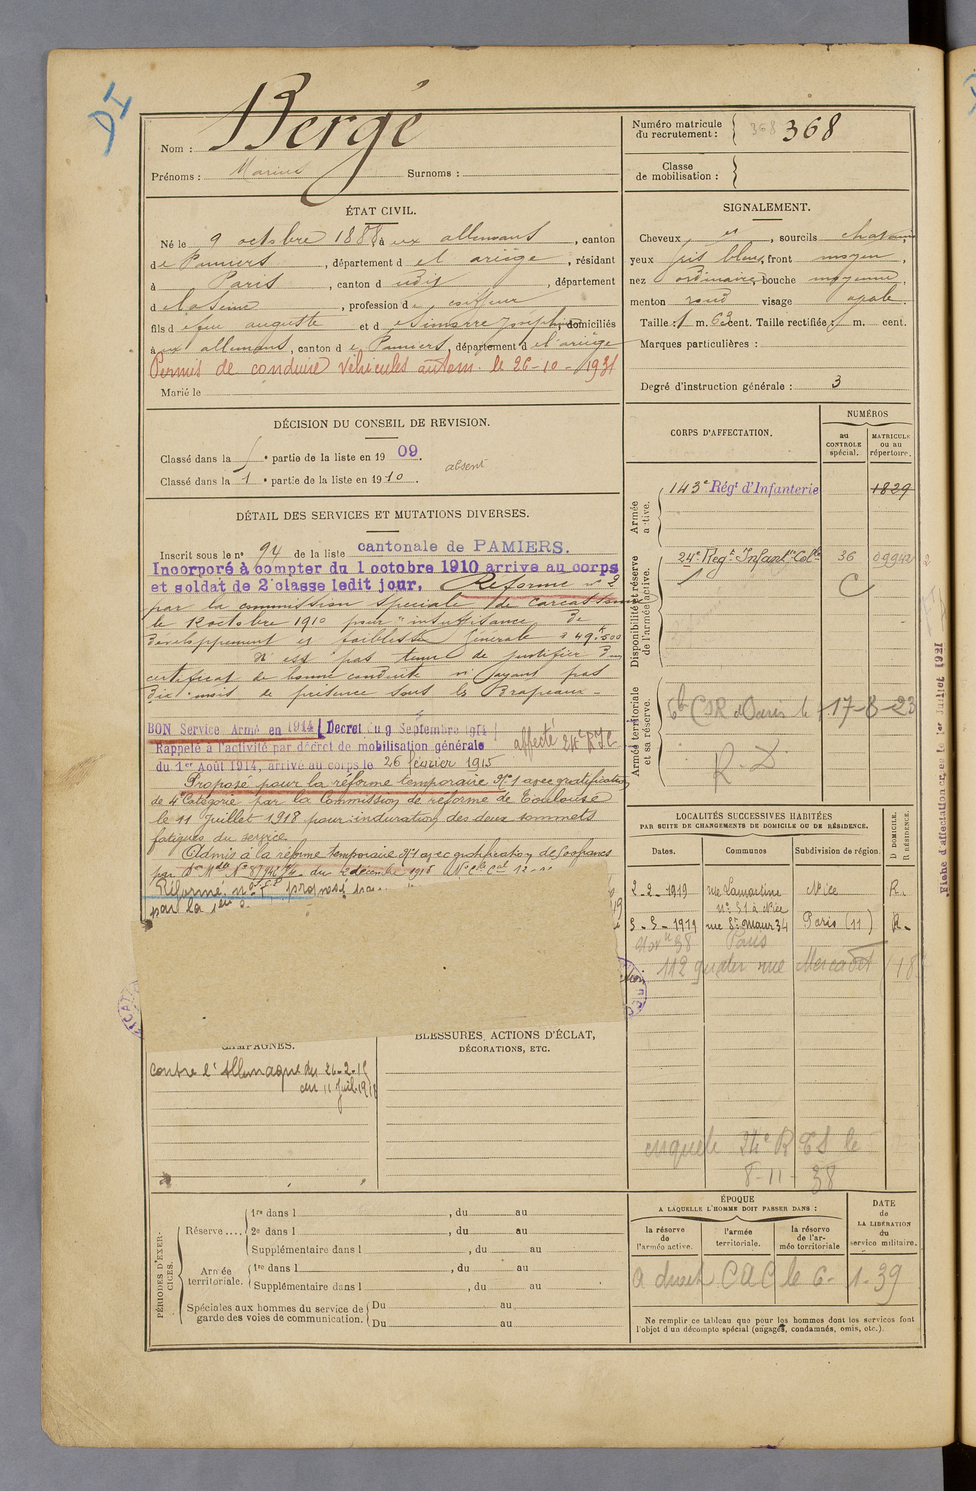 DI
Nom : Bergé
Prénoms : Marius Surnoms :
Numéro matricule du recrutement : 368 368
Classe de mobilisation :
ÉTAT CIVIL.
Né le 9 octobre 1888 à aux allemans, canton
de Pamiers, département de l ariège, résidant
à Paris, canton d udit, département
d e la Seine, profession de coiffeur
fils de feu auguste et de Simorre Josephe, domiciliés
à aux allemans, canton de Pamiers, département de l'ariège
Permis de conduire véhicules autom. le 26-10-1931
Marié le
SIGNALEMENT.
Cheveux et, sourcils chatains
yeux gris bleu, front moyen,
nez ordinaire, bouche moyenne,
menton rond visage ovale.
Taille : 1 m. 63 cent. Taille rectifiée : m. cent.
Marques particulières :
Degré d'instruction générale : 3
DÉCISION DU CONSEIL DE REVISION.
Classé dans la partie de la liste en 1909.
Classé dans la 1e partie de la liste en 1910. absent
DÉTAIL DES SERVICES ET MUTATIONS DIVERSES.
Inscrit sous le n° 94 de la liste cantonale de PAMIERS.
Incorporé à compter du 1 octobre 1910 arrive au corps
et soldat de 2e classe ledit jour. Réformé n° 2
par la commission spéciale de Carcassonne
le 12 octobre 1910 pour "insuffisance de
développement et faiblesse générale à 49k500
N'est pas tenu de justifier d'un
certificat de bonne conduite n'ayant pas
dix mois de présence sous les Drapeaux -
BON Service Armé en 1914 Décret du 9 Septembre 1914
Rappelé à l'activité par décret de mobilisation générale
du 1er Août 1914, arrivé au corps le 26 février 1915 affecté 24e R.I.C
Proposé pour la réforme temporaire N° 1 avec gratification
de 4e Catégorie par la Commission de réforme de Toulouse
le 11 Juillet 1918 pour: induration des deux sommets
fatigues du service
Admis à la réforme temporaire N°1 avec gratification de francs
par du 2 décembre 1918
Réformé n° 1 proposé
par la 1ère
CORPS D'AFFECTATION.
NUMÉROS
au CONTROLE spécial.
MATRICULE ou au répertoire.
Armée active.
143e Régt d'Infanterie 1839
Disponibilité et réserve de l'armée active.
24e Régt Infant. Colle 36
C
Armée territoriale et sa réserve.
CSR d'Ours le 17-8-23
R. D
Fiche d'affectation créée le 1er Juillet 1921
LOCALITÉS SUCCESSIVES HABITÉES
PAR SUITE DE CHANGEMENTS DE DOMICILE OU DE RÉSIDENCE.
Dates. Communes Subdivision de région. D DOMICILE. R RÉSIDENCE.
2-2-1919 rue Lamartine n° 51 à Nice Nice R.
5-5-1919 rue St Maur 34 Paris Paris (11) R.
Nov 38 112 quater rue Mercadet 18
enquete 24e R le
8-11-38
CAMPAGNES.
Contre l'Allemagne du 26-2-15
au 11 Juil 1918
BLESSURES, ACTIONS D'ÉCLAT,
DÉCORATIONS, ETC.
PÉRIODES D'EXERCICES.
Réserve....
1re dans l , du au
2e dans l , du au
Supplémentaire dans l , du au
Armée territoriale.
1re dans l , du au
Supplémentaire dans l , du au
Spéciales aux hommes du service de garde des voies de communication.
Du au
Du au
ÉPOQUE
A LAQUELLE L'HOMME DOIT PASSER DANS :
la réserve de l'armée active.
l'armée territoriale.
la réserve de l'armée territoriale
DATE de LA LIBÉRATION du service militaire.
a droit C a C le 6-1-39
Ne remplir ce tableau que pour les hommes dont les services font
l'objet d'un décompte spécial (engagés, condamnés, omis, etc.).